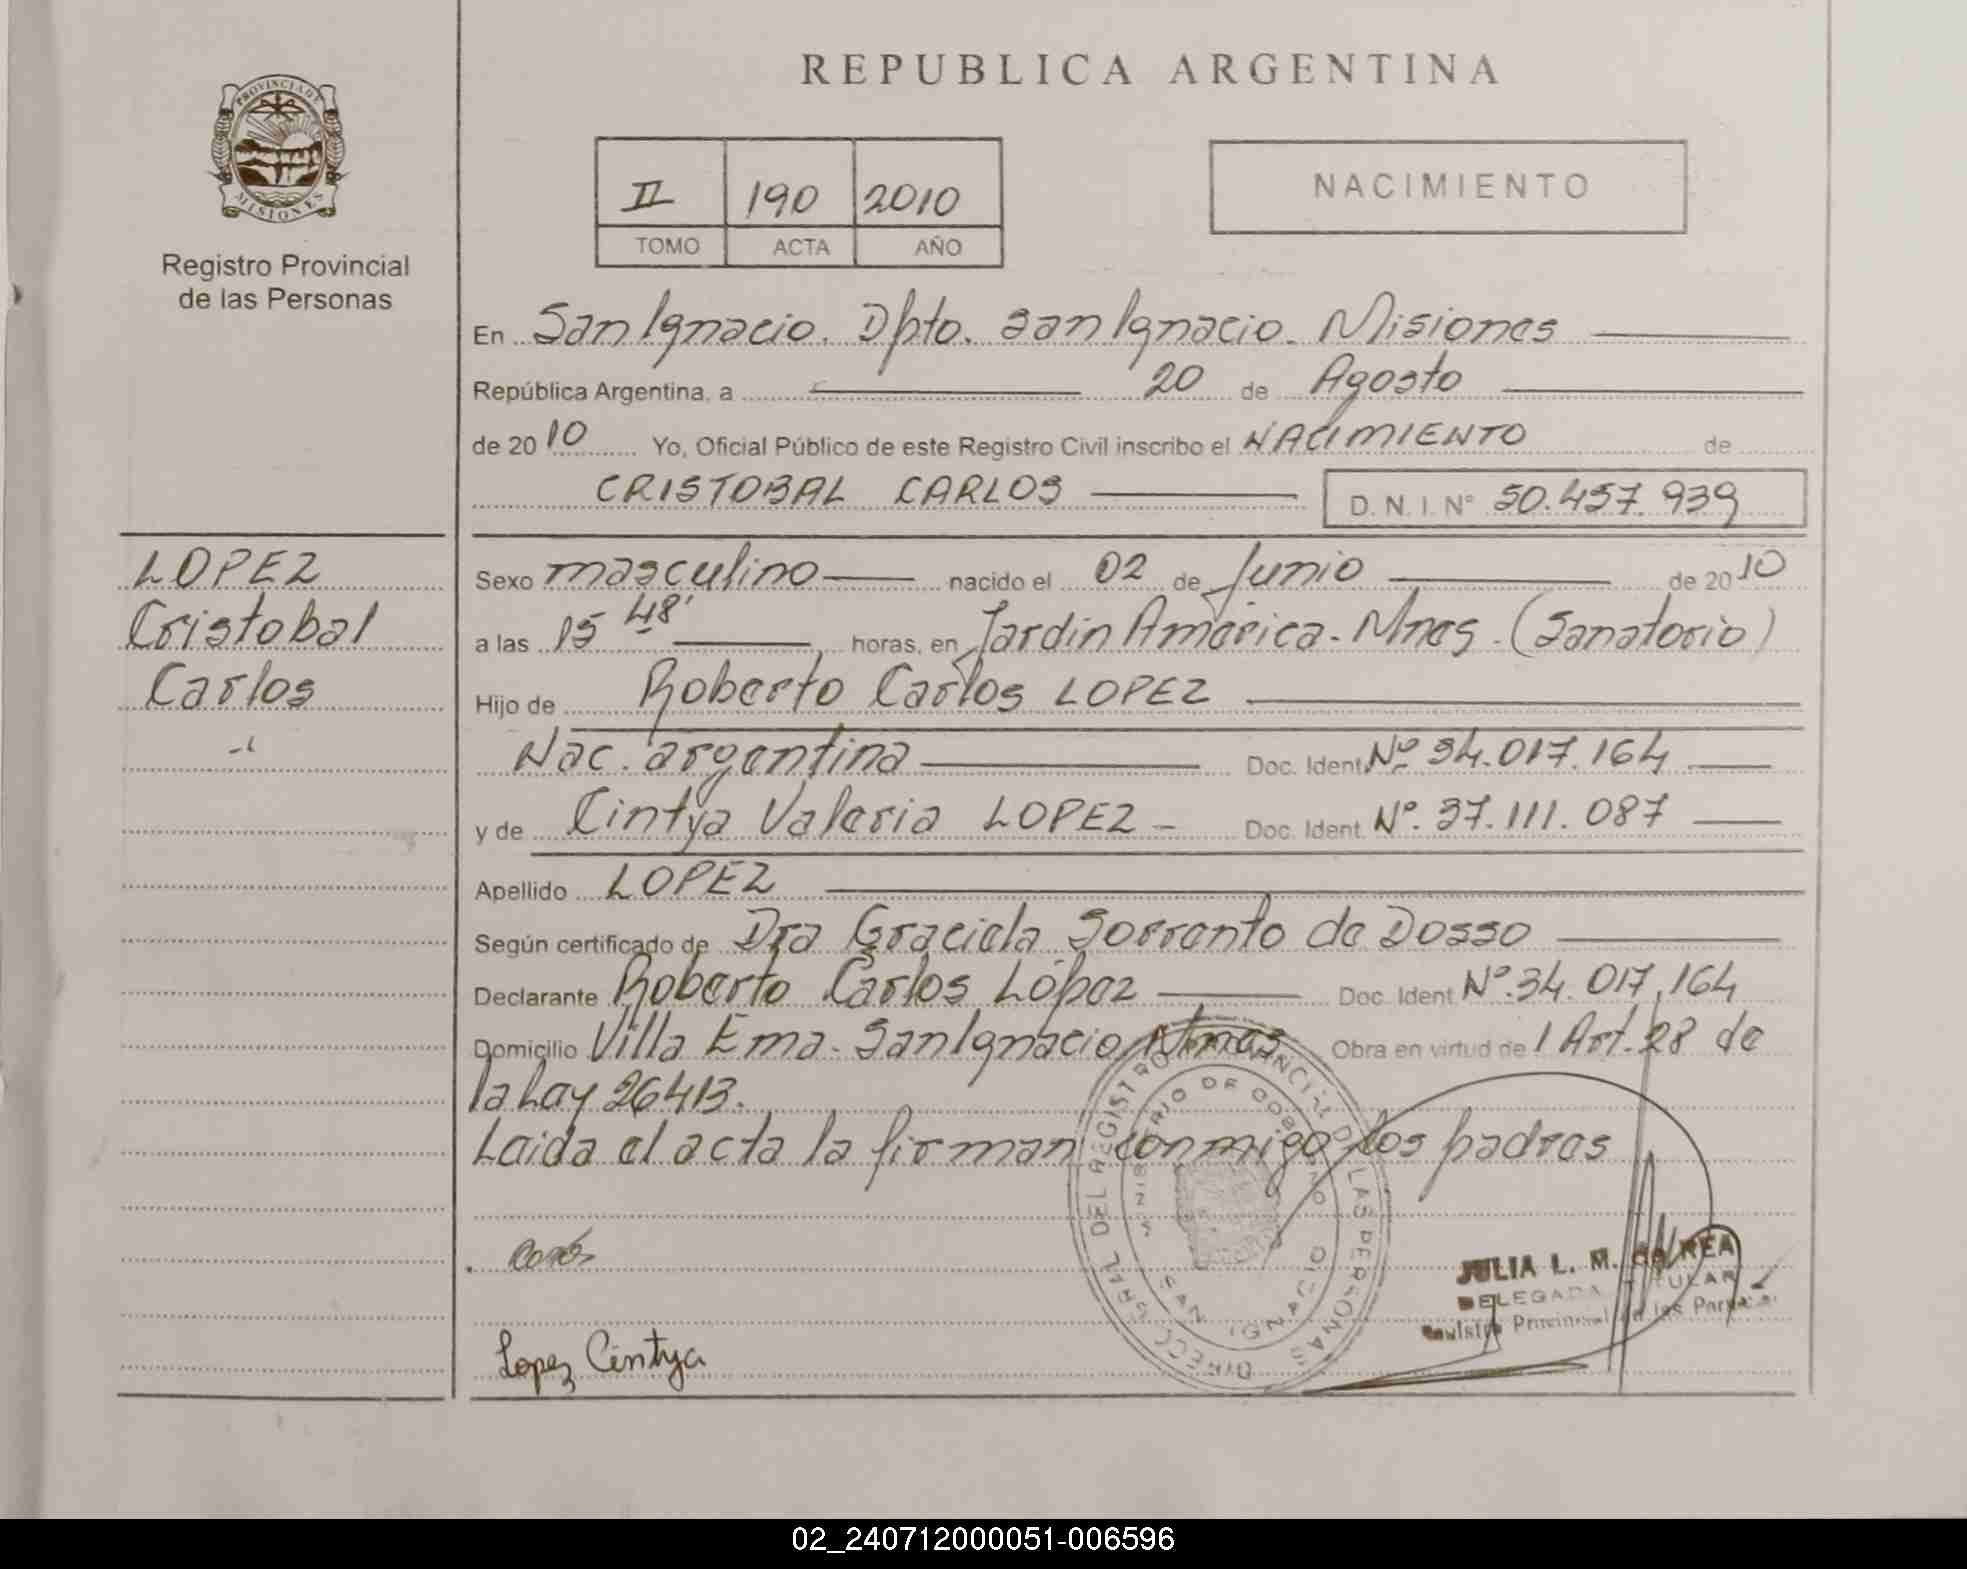 REPUBLICA ARGENTINA
PROVINCIA DE
MISIONES
Registro Provincial
de las Personas
II 190 2010
TOMO ACTA AÑO
NACIMIENTO
En San Ignacio. Dpto. San Ignacio. Misiones
República Argentina, a 20 de Agosto
de 2010 Yo, Oficial Público de este Registro Civil inscribo el NACIMIENTO de
CRISTOBAL CARLOS D. N. I. N° 50.457.939
LOPEZ
Cristobal
Carlos
Sexo masculino nacido el 02 de Junio de 2010
a las 15 48' horas, en Jardin America. Mnes. (Sanatorio)
Hijo de Roberto Carlos LOPEZ
Nac. argentina Doc. Ident. N° 34.017.164
y de Cintya Valeria LOPEZ - Doc. Ident. N°. 37.111.087
Apellido LOPEZ
Según certificado de Dra Graciela Sorrento de Dosso
Declarante Roberto Carlos López Doc. Ident N°.34.017.164
Domicilio Villa Ema. San Ignacio Mnes Obra en virtud de 1 Art. 28 de
la Ley 26413.
Leida el acta la firman conmigo los padres
Lopez Cintya
JULIA L. M. de REA
DELEGADA TITULAR
Registro Provincial de las Personas
SAN IGNACIO
02_240712000051-006596